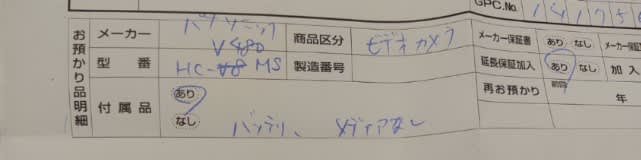 GPC.No 1 4 1 7 5
お預かり品明細
メーカー パナソニック 商品区分 ビデオカメラ
V480
型番 HC-V8 MS 製造番号
付属品 あり
なし バッテリ、メディアなし
メーカー保証書 あり なし
延長保証加入 あり なし 加入
再お預かり 前回 年